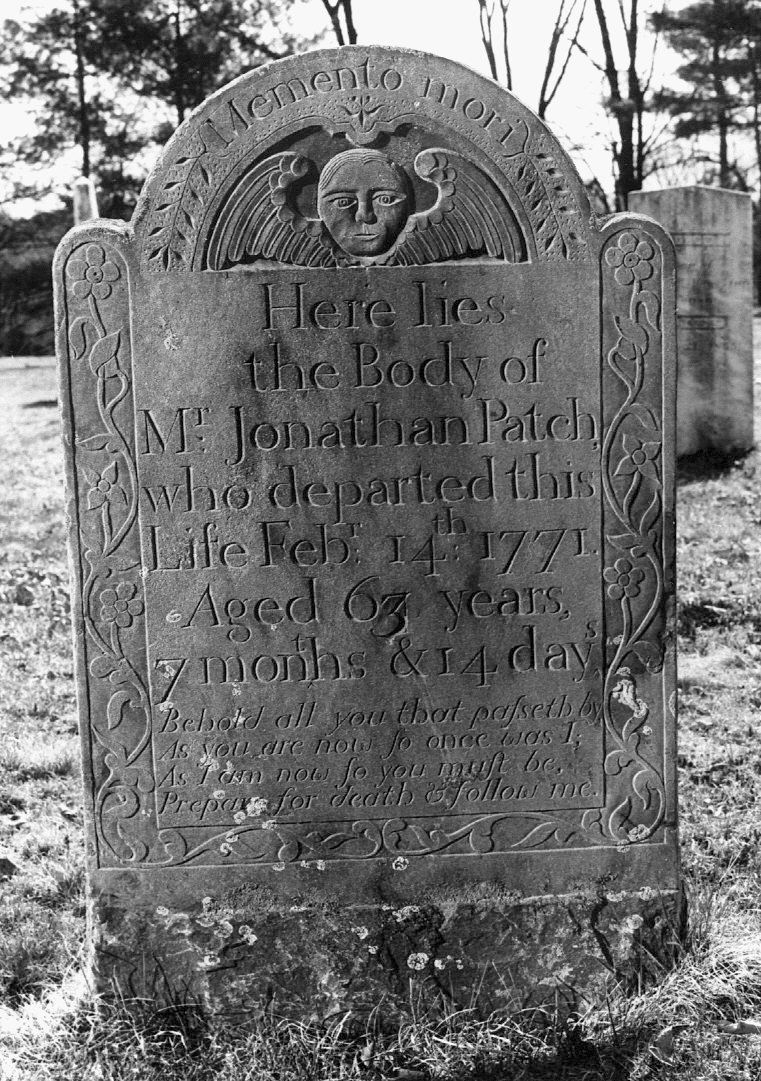 Memento mori
Here lies
the Body of
Mr. Jonathan Patch,
who departed this
Life Febr. 14th: 1771.
Aged 63 years,
7 months & 14 days
Behold all you that paſseth by
As you are now ſo once was I;
As I am now ſo you muſt be,
Prepare for death & follow me.